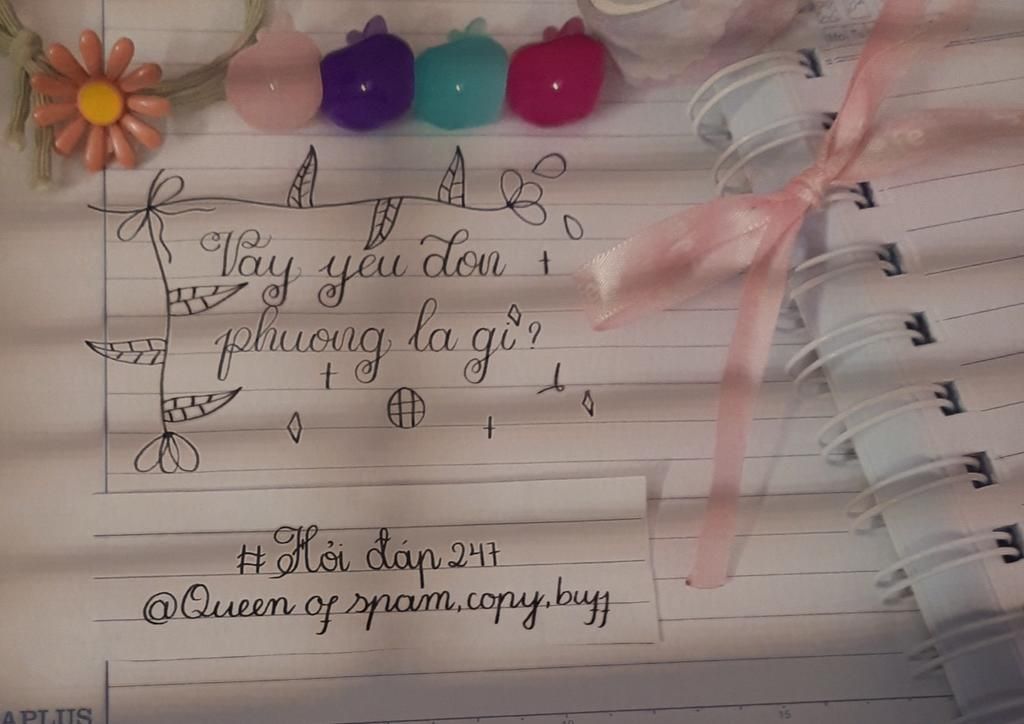 Vay yeu đon
phuong la gi?
#Hỏi đáp 247
@Queen of spam,copy,buff
APLUS
15